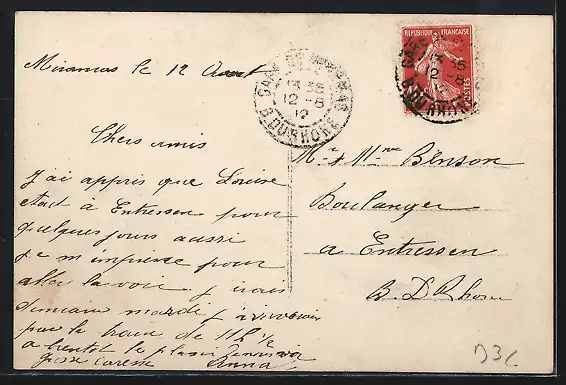 Miramas le 12 Aout
Chers amis
J'ai appris que Louise
etait à Entressen pour
quelques jours aussi
je m'empresse pour
aller la voir j'irais
demain mardi j'arriverai
par le train de 11h ½
a bientot le plaisir
caresse Anna
GARE DE MIRAMAS
13 35
12 -8
12
B. DU RHONE
REPUBLIQUE FRANÇAISE
POSTES
13 35
12 -8
Mr & Mme Benson
Boulanger
a Entressen
B. D. Rhone
D3C